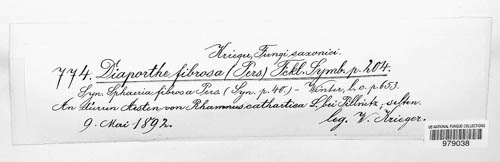 Krieger, Fungi saxonici.
774. Diaporthe fibrosa (Pers) Fckl. Symb. p. 204.
Syn. Sphaeria fibrosa Pers (Syn. p. 40.) - Winter, l. c. p. 653.
An dürren Aesten von Rhamnus cathartica L. bei Pillnitz; selten.
9. Mai 1892. leg. W. Krieger.
US NATIONAL FUNGUS COLLECTIONS
979038